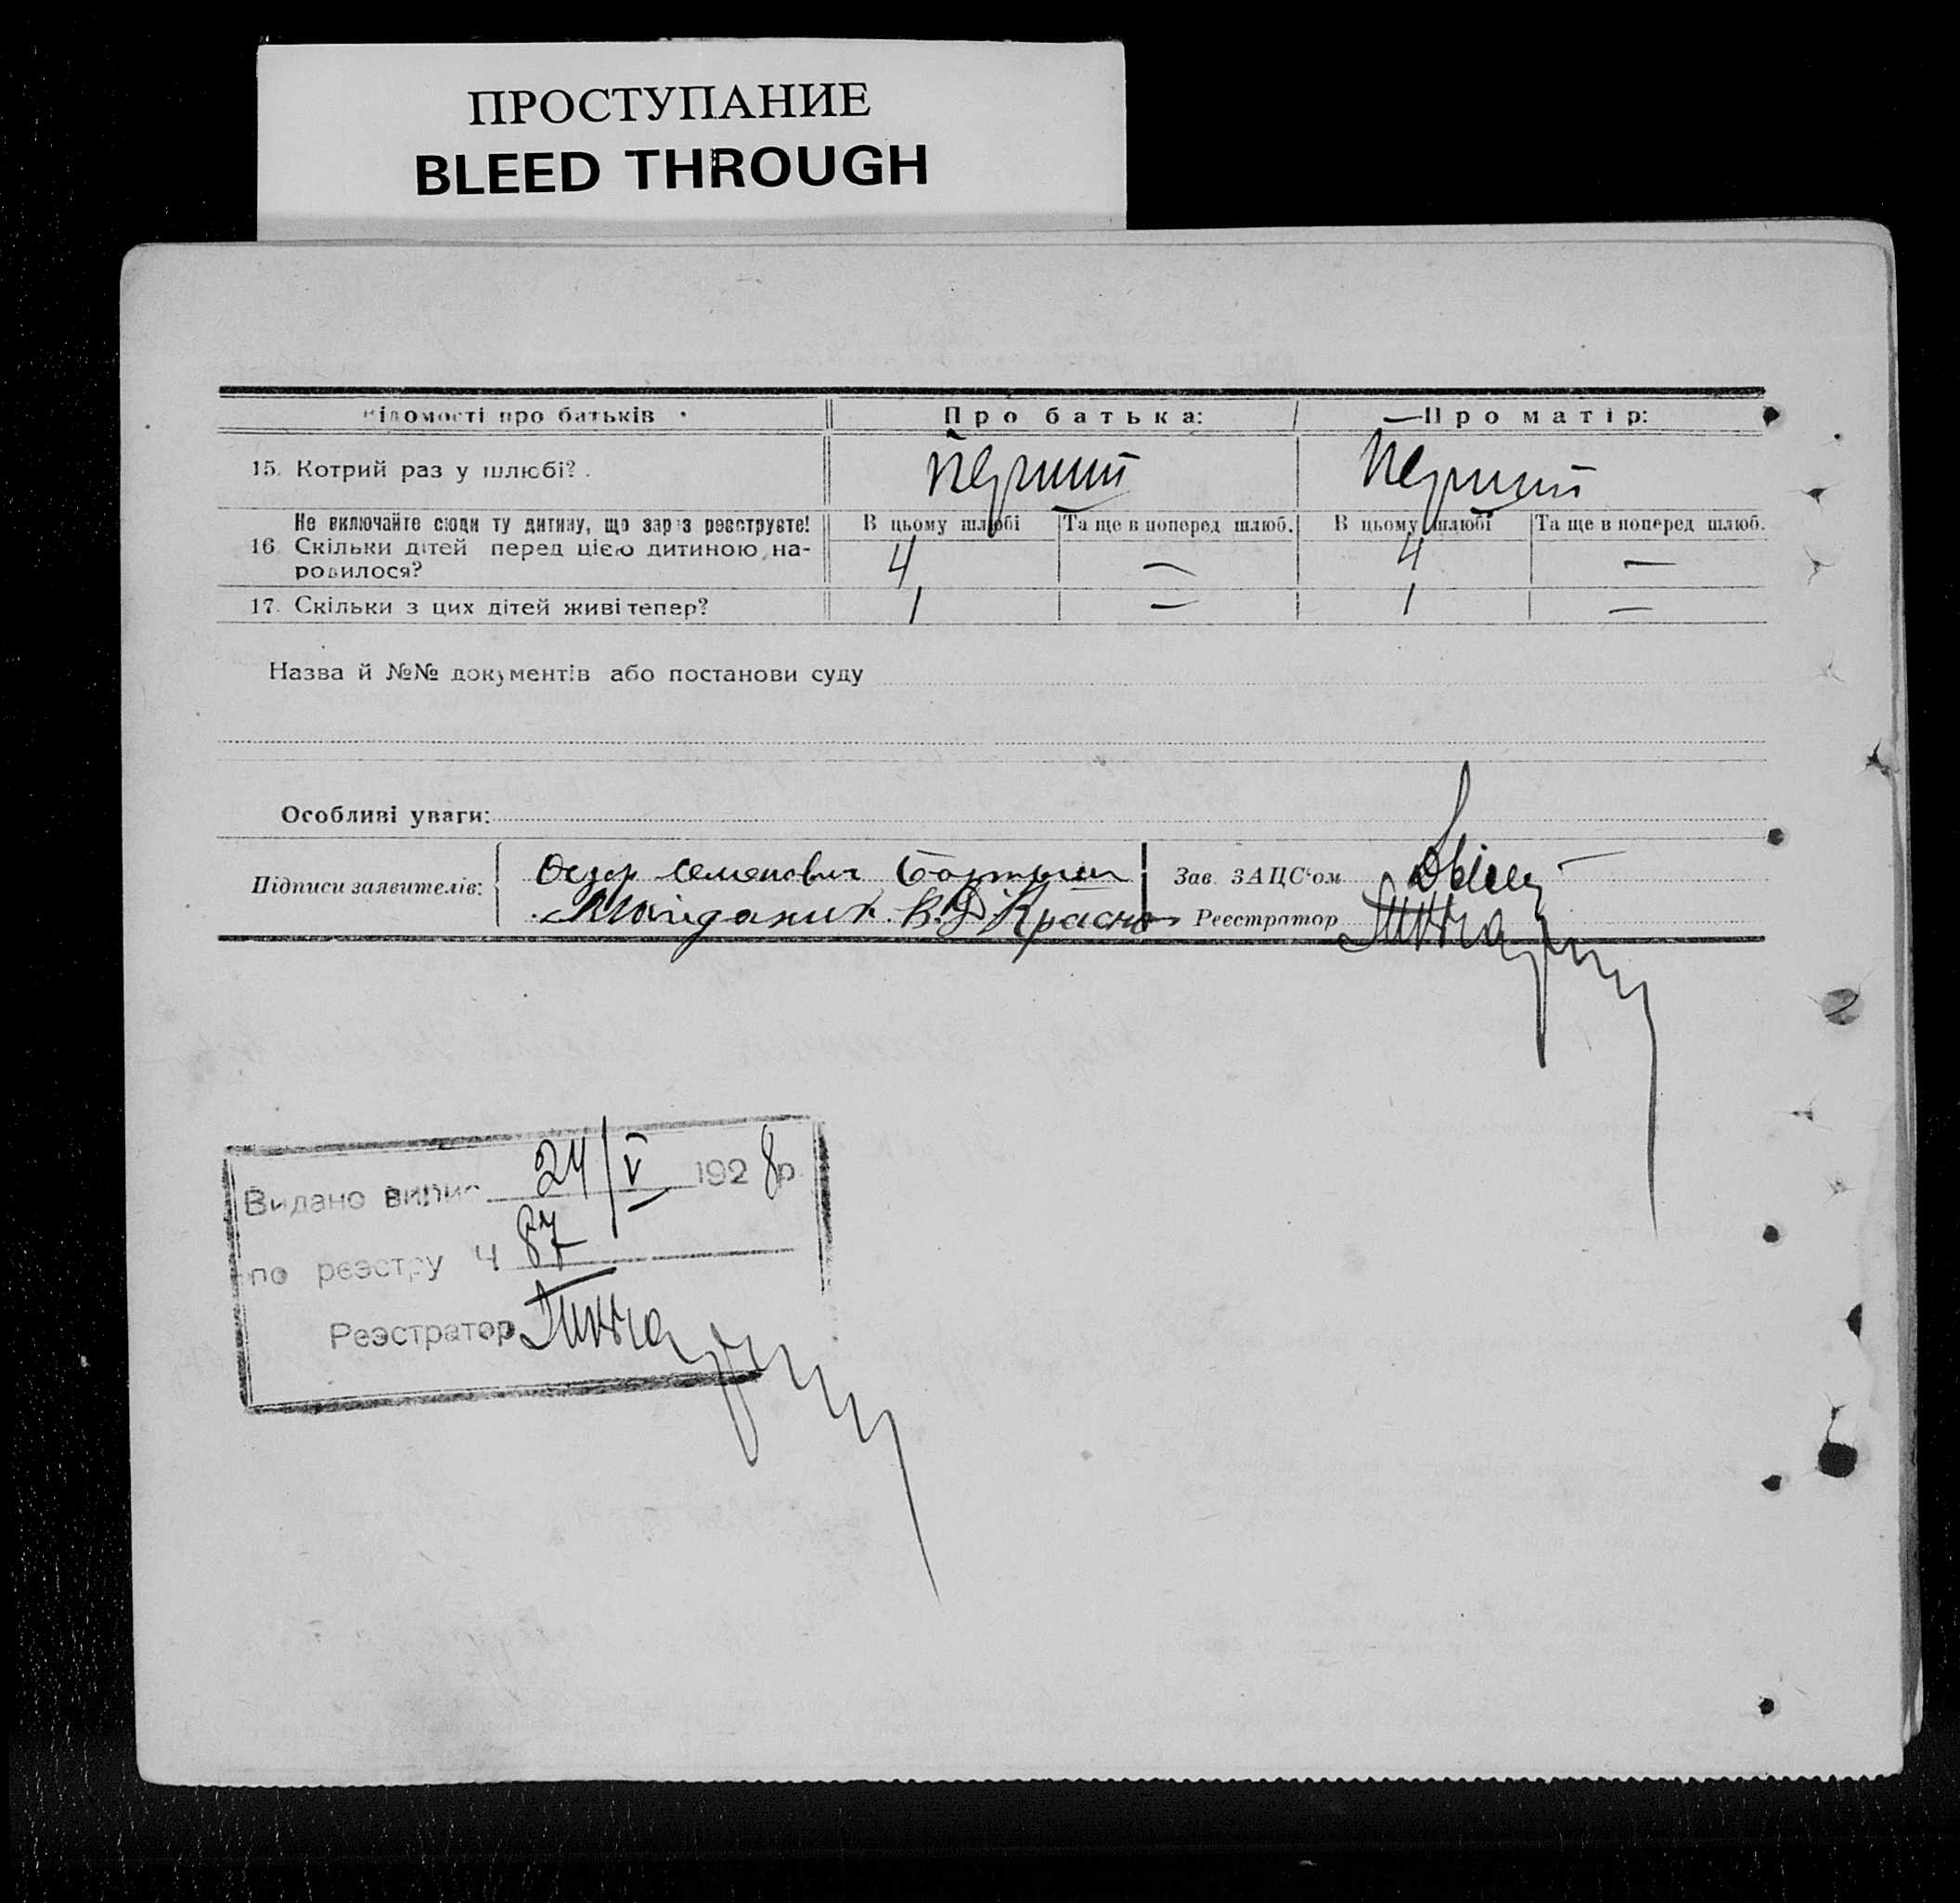 ПРОСТУПАНИЕ
BLEED THROUGH
Відомості про батьків Про батька: Про матір:
15. Котрий раз у шлюбі? Перший Перший
Не включайте сюди ту дитину, що зараз реєструєте! В цьому шлюбі Та ще в поперед шлюб. В цьому шлюбі Та ще в поперед шлюб.
16. Скільки дітей перед цією дитиною на- 4 — 4 —
родилося?
17. Скільки з цих дітей живі тепер? 1 — 1 —
Назва й №№ документів або постанови суду
Особливі уваги:
Підписи заявителів: Федор Семенович
Зав. ЗАЦС'ом
Майданик В. Д. Красно Реєстратор
Видано випис 24/V 1928 р.
по реэстру Ч 87
Реэстратор